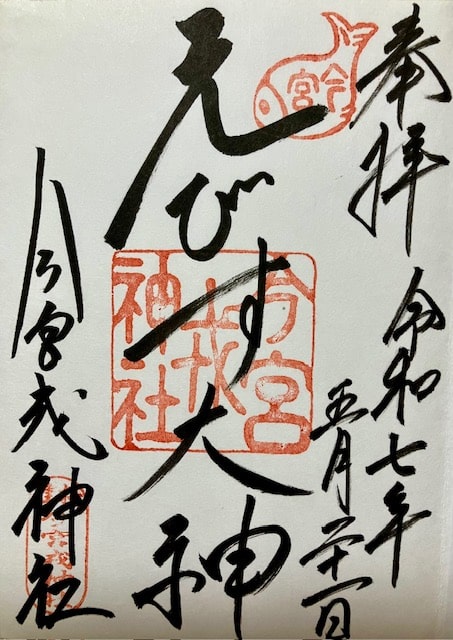 奉拝
令和七年
五月二十一日
今宮
えびす大神
今宮
戎
神社
今宮戎神社